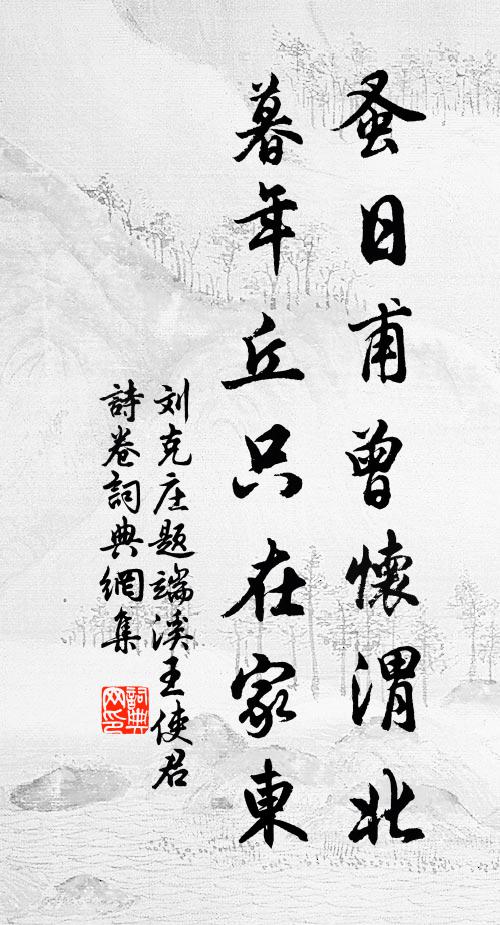 蚤日甫曾懷渭北
暮年丘只在家東
刘克庄题端溪王使君
詩卷詞典網集
詞典网印